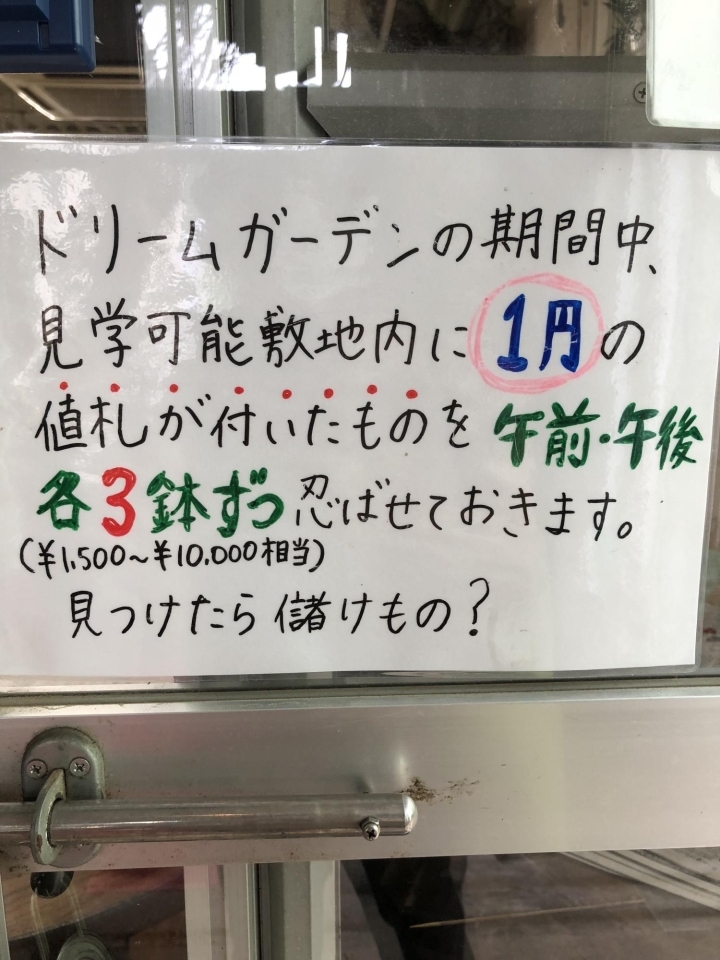 ドリームガーデンの期間中、
見学可能敷地内に1円の
値札が付いたものを午前・午後
各3鉢ずつ忍ばせておきます。
(¥1,500~¥10,000相当)
見つけたら儲けもの?